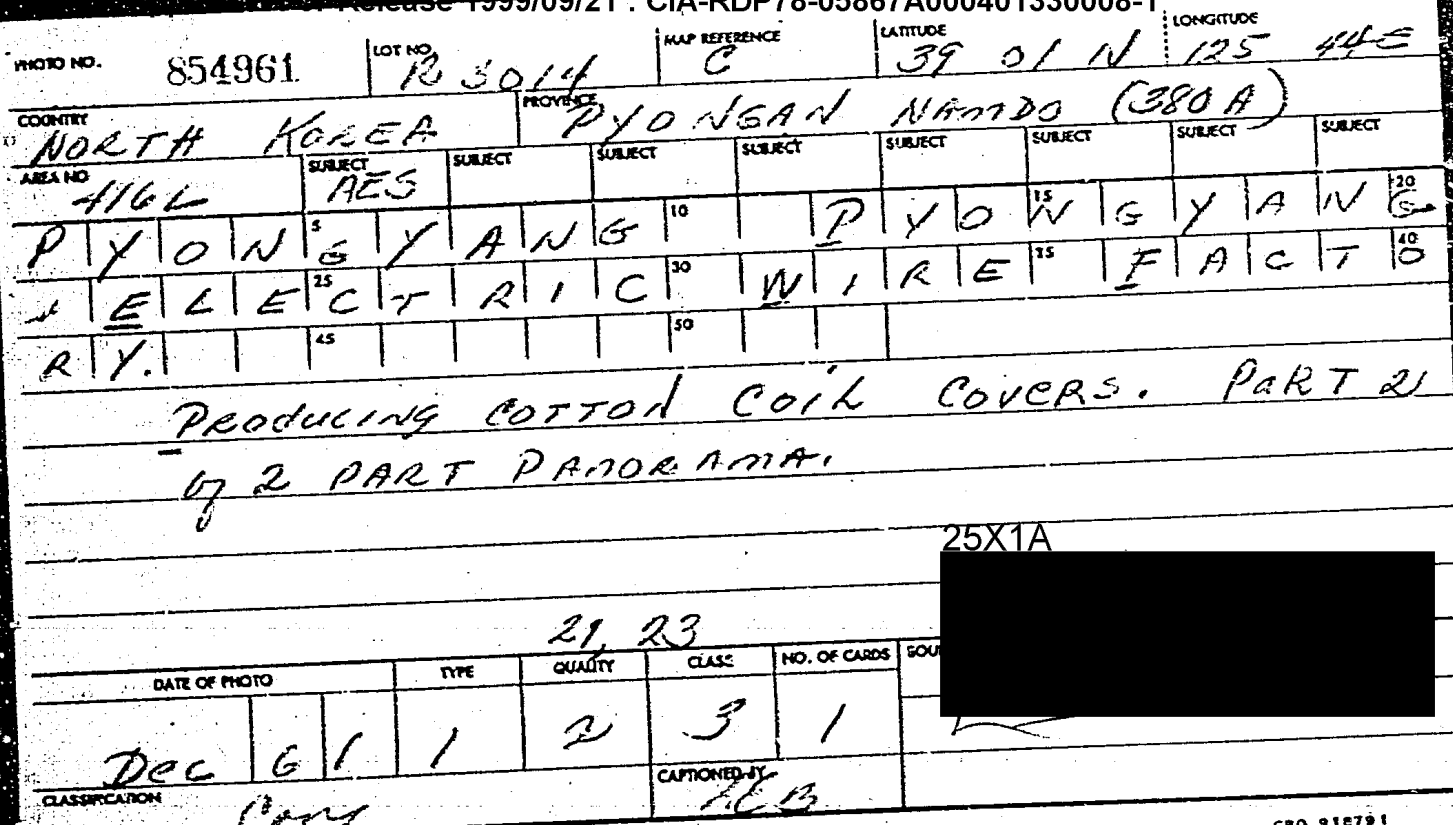 Release 1999/09/21 : CIA-RDP78-05867A000401330008-1
PHOTO NO. 854961 LOT NO. R 3014 MAP REFERENCE C LATITUDE 39 01 N LONGITUDE 125 44 E
COUNTRY NORTH KOREA PROVINCE PYONGAN NAMDO (380A)
AREA NO 416L SUBJECT AES SUBJECT SUBJECT SUBJECT SUBJECT SUBJECT SUBJECT SUBJECT
PYONG 5 YANG 10 PYO 15 NGYANG 20
ELEC 25 TRIC 30 WIRE 35 FACTO 40
RY. 45 50
PRODUCING COTTON COIL COVERS. PART 2
of 2 PART PANORAMA.
25X1A
21, 23
DATE OF PHOTO TYPE QUALITY CLASS NO. OF CARDS SOU
Dec 61 1 2 3 1
CLASSIFICATION CAPTIONED BY
GPO 918791